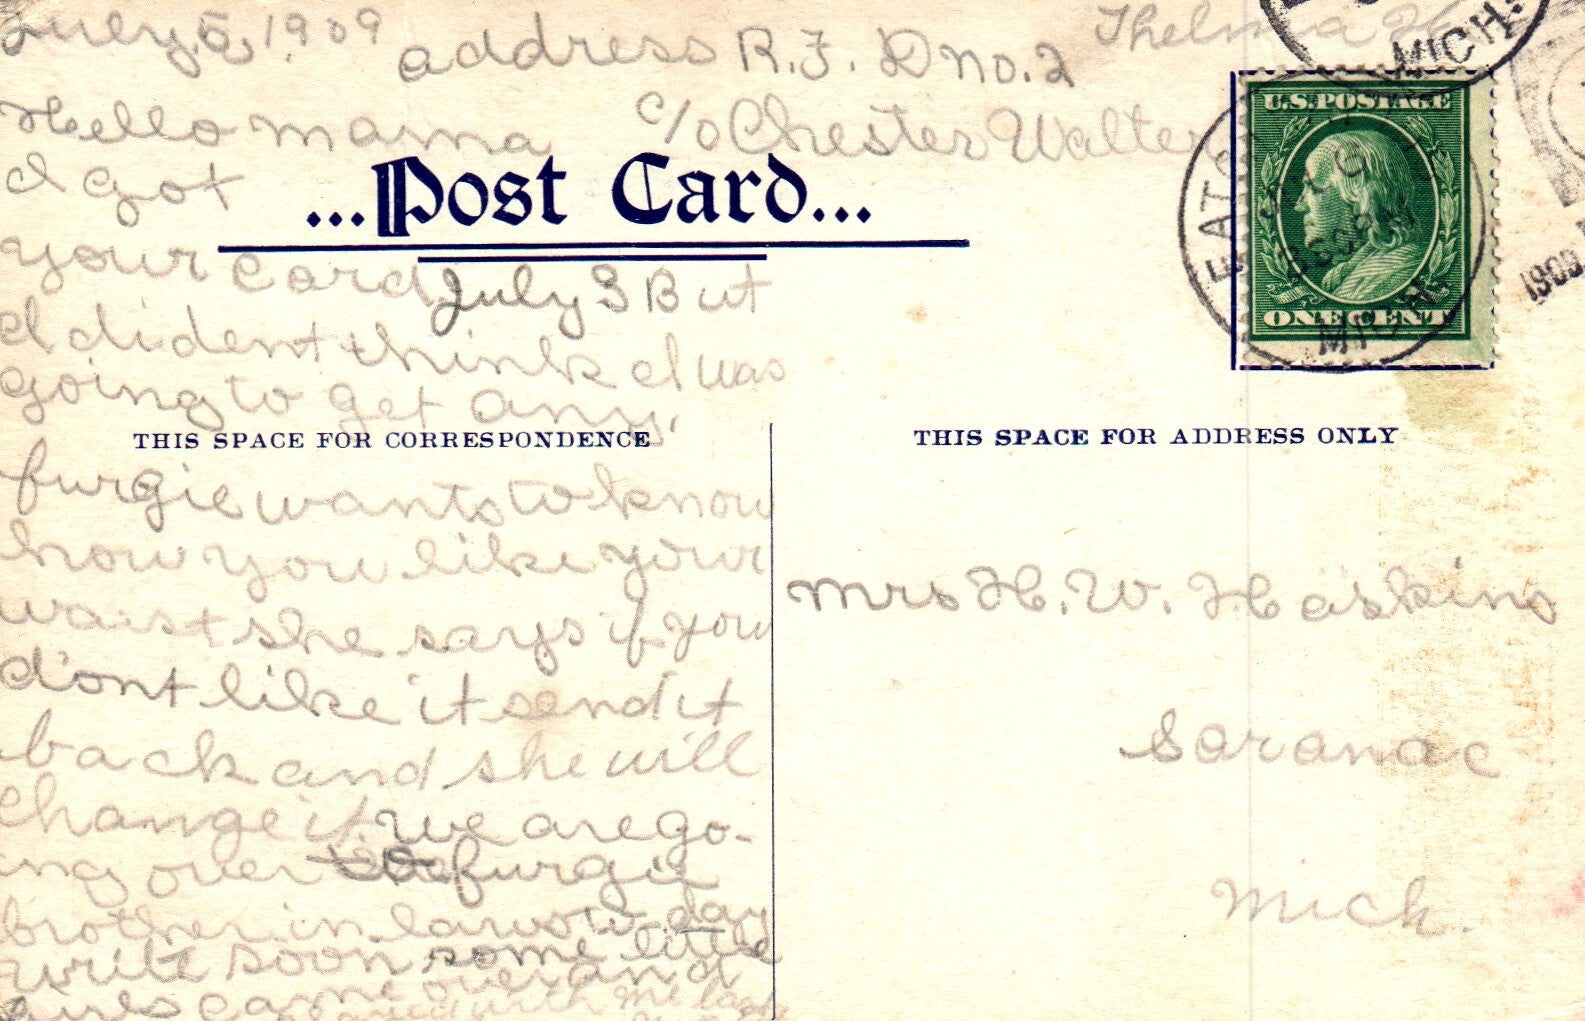 July 5, 1909
address R.F.D no. 2
Thelma H
Hello mama
c/o Chester Walter
I got
...Post Card...
your card July 3 But
I dident think I was
going to get any.
THIS SPACE FOR CORRESPONDENCE
furgie wants to know
how you like your
waist she says if you
d'ont like it send it
back and she will
change it. we are go-
ing over to furgie
brother in laws to day
write soon some little
girls came over and
played with me
U.S. POSTAGE
ONE CENT
EATON
MICH.
MICH.
1909
THIS SPACE FOR ADDRESS ONLY
Mrs H. W. Haskins
Saranac
Mich.